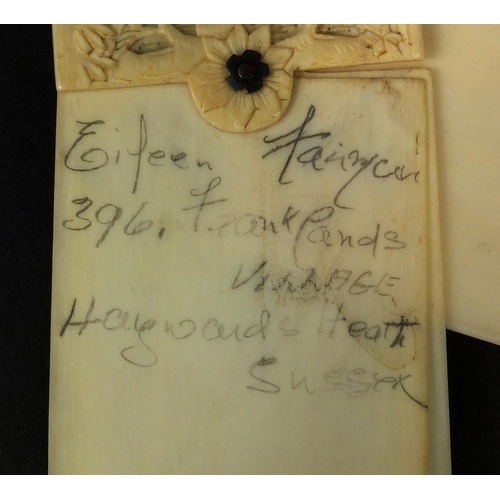 Eileen
396, Franklands
VILLAGE
Haywards Heath
Sussex